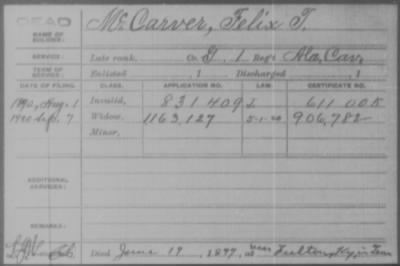 DEAD
NAME OF SOLDIER: McCarver, Felix T.
SERVICE: Late rank, Co. G, 1 Reg't Ala. Cav.
TERM OF SERVICE: Enlisted , 1 Discharged , 1
DATE OF FILING. CLASS. APPLICATION NO. LAW. CERTIFICATE NO.
1890, Aug. 1 Invalid, 831409 L 611005
1900 Sep. 7 Widow, 1163,127 5-1-20 906,782
Minor,
ADDITIONAL SERVICES:
REMARKS:
Died June 19, 1897, near Fulton, Ky, in Tenn